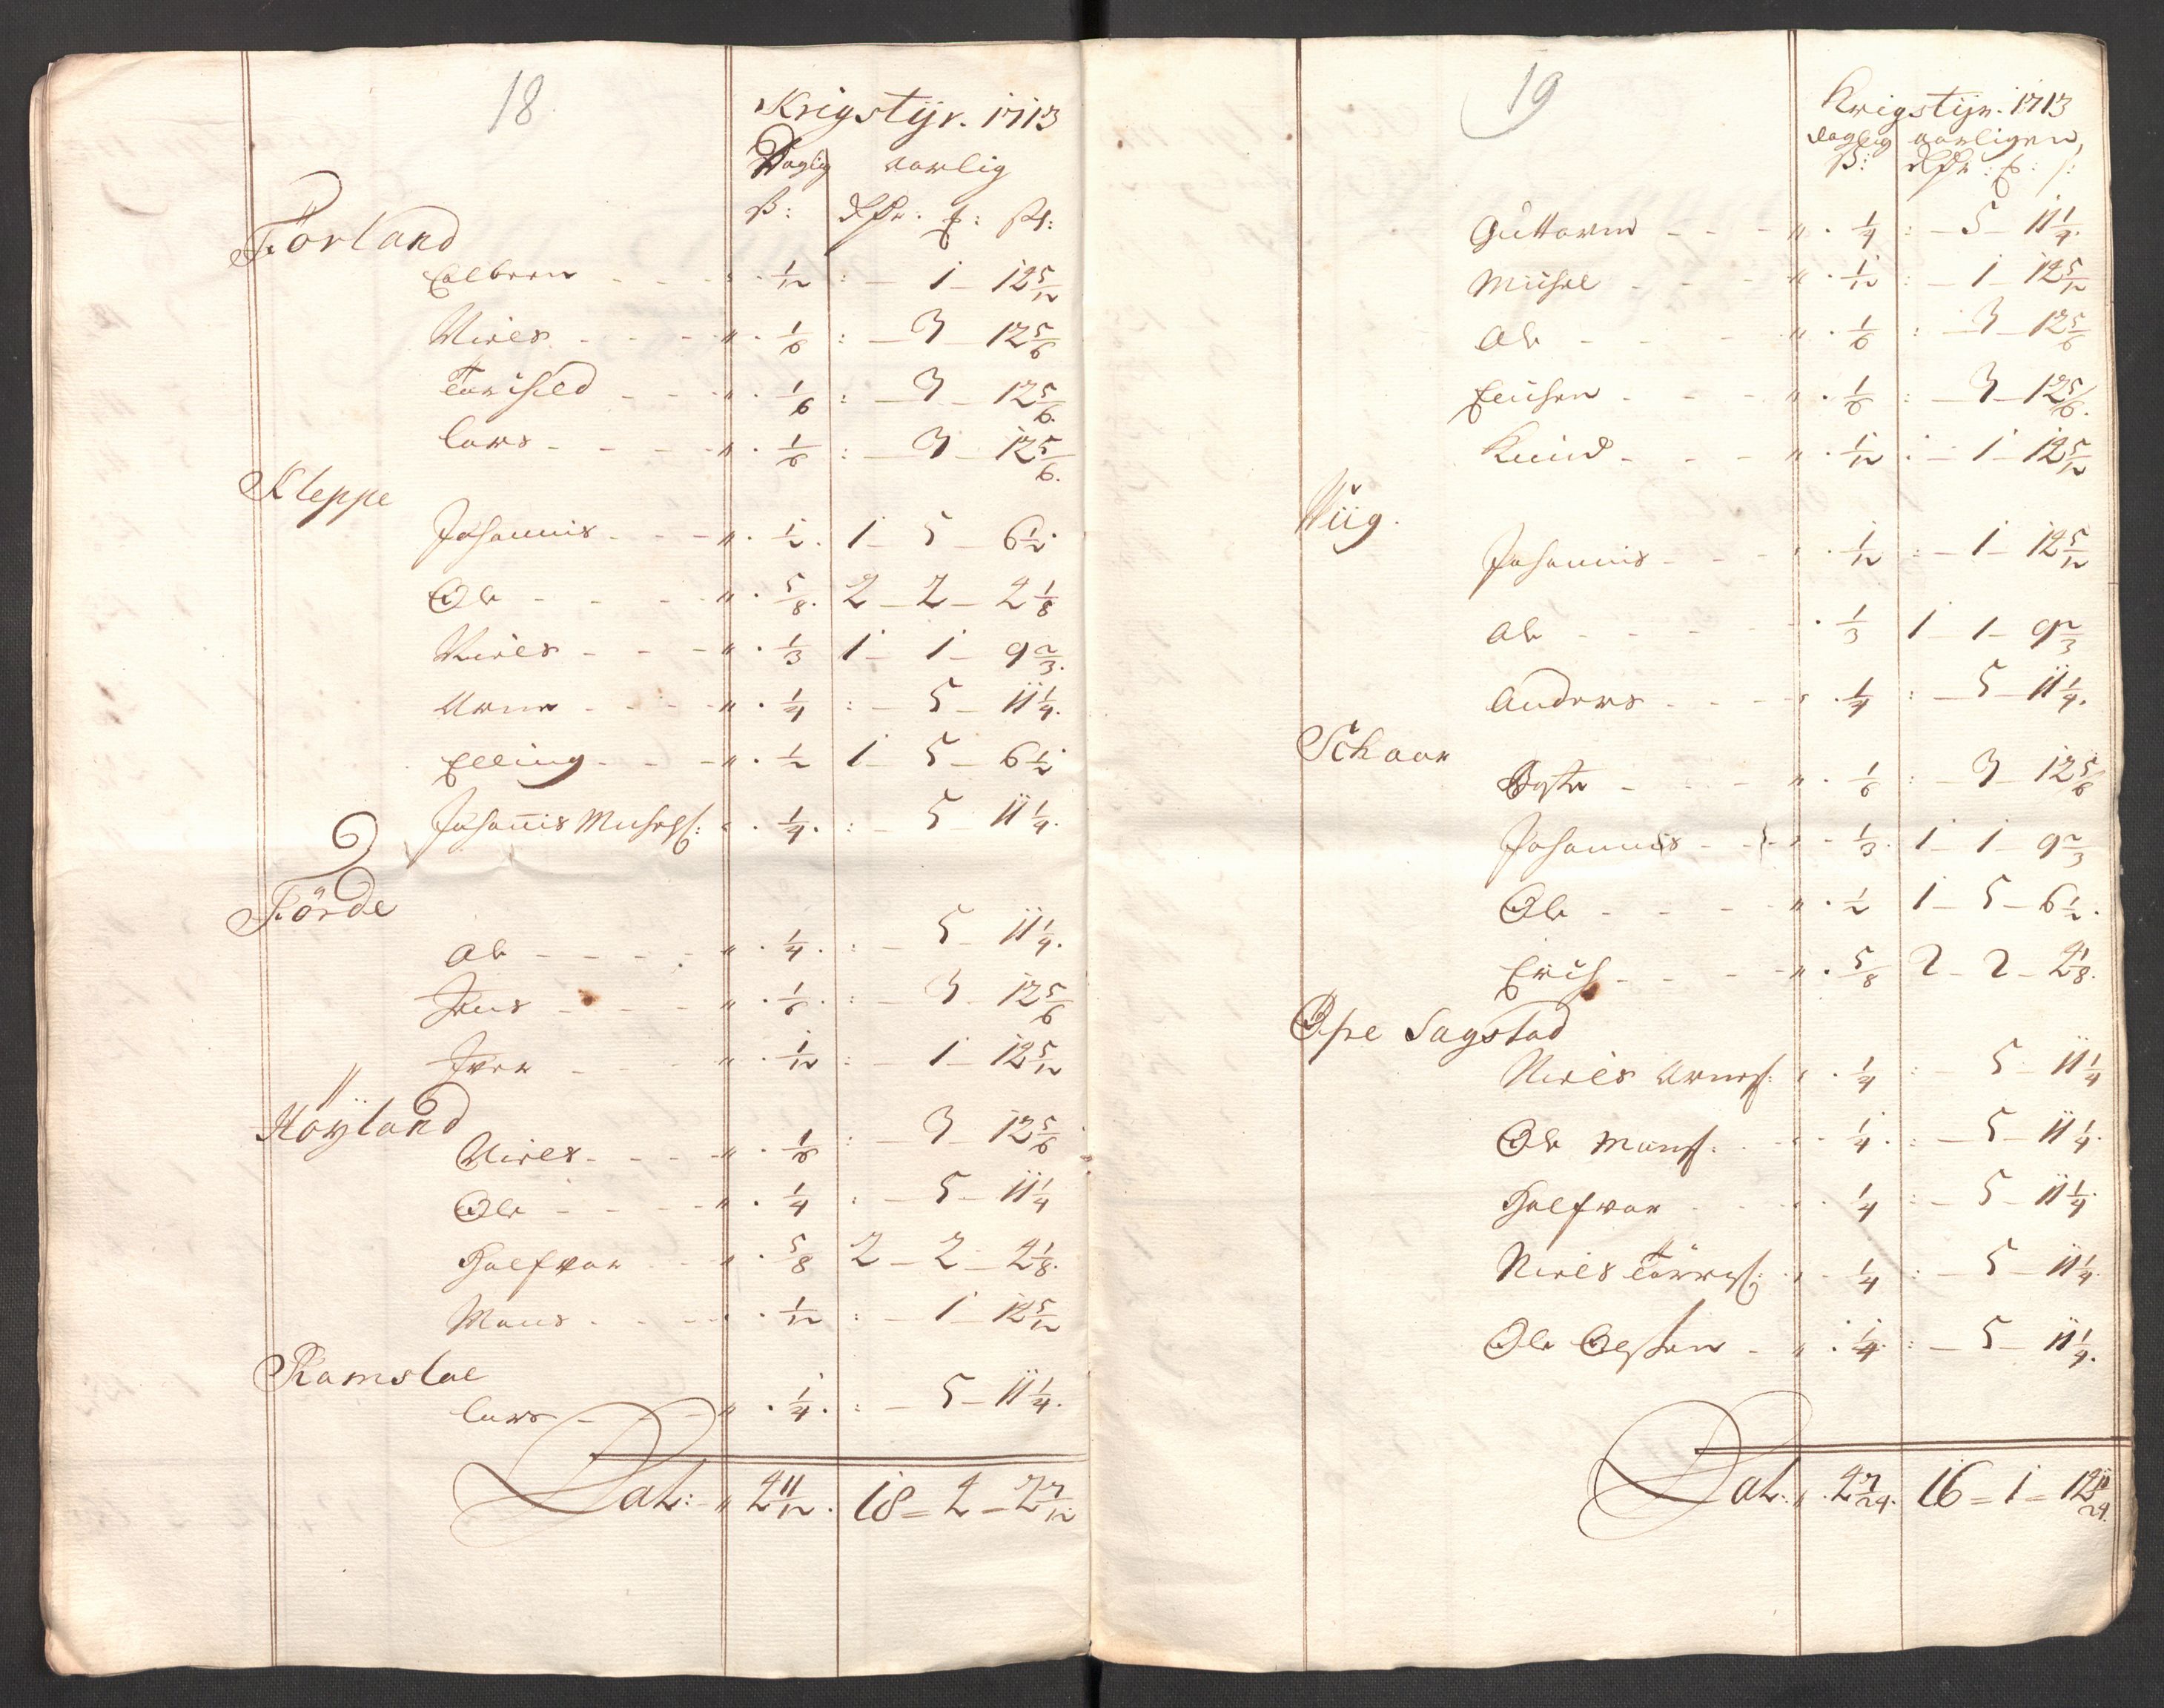 18
Krigstijr. 1713
Daglig aarlig
ß: dlr. ß:
Förland
Colbern - - - : . 1/12 : - 1 - 12 5/12
Niels - - - " . 1/6 : - 3 - 12 5/6
Torchild - - " . 1/6 : - 3 - 12 5/6
Lars - - - " . 1/6 : - 3 - 12 5/6
Kleppe
Johannis - - " . 1/2 . 1 - 5 - 6 1/2
Ole - - - " . 5/8 . 2 - 2 - 2 1/8
Niels - - - " . 1/3 1 - 1 - 9 2/3
Arne - - - " . 1/4 : - 5 - 11 1/4
Elling - - - " . 1/2 1 - 5 - 6 1/2
Johañis . 1/4 . : - 5 - 11 1/4
Förde
Ole - - - " . 1/4 . : - 5 - 11 1/4
Jens - - - " . 1/6 . : - 3 - 12 5/6
Iver - - - " . 1/12 : - 1 - 12 5/12
Höyland
Niels - - - " . 1/6 : - 3 - 12 5/6
Ole - - - " . 1/4 : - 5 - 11 1/4
Halfvor - - " . 5/8 2 - 2 - 2 1/8
Mons - - - . 1/12 : - 1 - 12 5/12
Ramsløe
Lars - - - " . 1/4 . : - 5 - 11 1/4
Lat: " 4 11/12 . 18 - 4 - 2 7/12
19
Krigstijr. 1713
daglig aarligen,
ß: dlr: ß:
Guttorm - - - " . 1/4 : - 5 - 11 1/4
Michel - - - " . 1/12 : - 1 - 12 5/12
Ole - - - " . 1/6 : - 3 - 12 5/6
- - - " . 1/6 : - 3 - 12 5/6
Knud - - - " . 1/12 : - 1 - 12 5/12
Viig.
Johannis - - - . 1/12 : - 1 - 12 5/12
Ole - - - . 1/3 1 1 - 9 2/3
Anders - - - . 1/4 : - 5 - 11 1/4
Schaar
- - - " . 1/6 : - 3 12 5/6
Johannis - - - 1/3 . 1 - 1 - 9 2/3
Ole - - - " . 1/2 1 - 5 - 6 1/2
Erich - - - " . 5/8 2 - 2 - 2 1/8
Øfre Sagstad
Niels Arnes: . 1/4 : - 5 - 11 1/4
Ole Mons: . 1/4 : - 5 - 11 1/4
Halfvor . 1/4 : - 5 - 11 1/4
Niels Törris: . 1/4 : - 5 - 11 1/4
Ole Olssen - " . 1/4 : - 5 - 11 1/4
Lat: " . 4 7/24 . 16 - 1 -